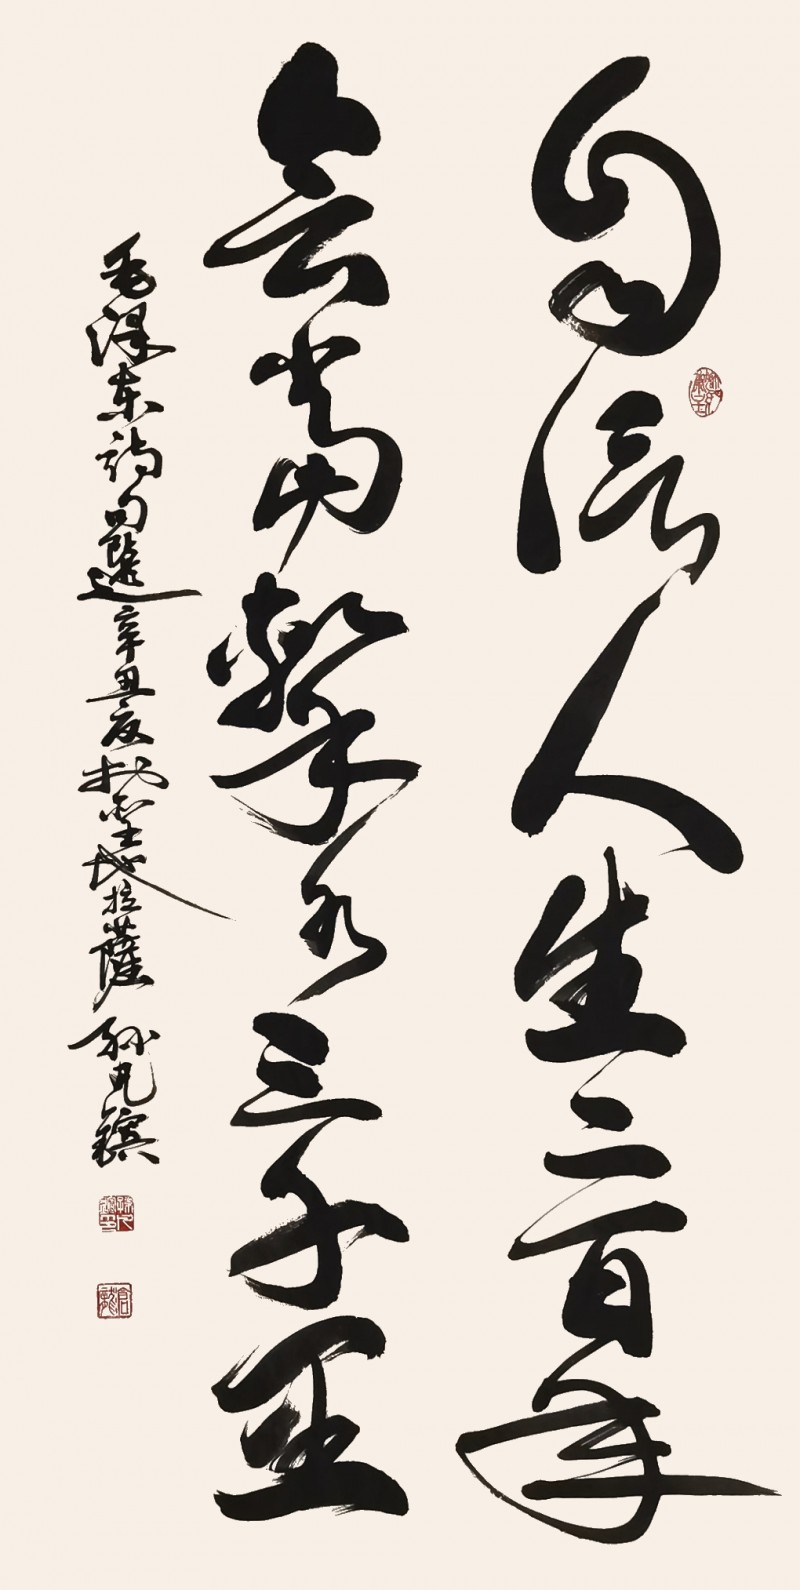 自信人生二百年
会当击水三千里
毛泽东诗句选 辛丑夏 于圣城拉萨 孙凡镔